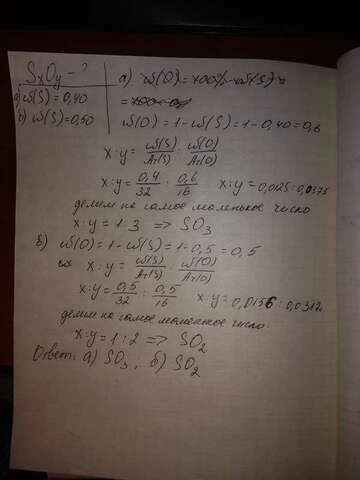 SxOy - ?
а) ω(S) = 0,40
б) ω(S) = 0,50
а) ω(O) = 100% - ω(S) =
=
ω(O) = 1 - ω(S) = 1 - 0,40 = 0,6
x:y = ω(S)/Ar(S) : ω(O)/Ar(O)
x:y = 0,4/32 : 0,6/16 x:y = 0,0125 : 0,0375
делим на самое маленькое число
x:y = 1:3 => SO3
б) ω(O) = 1 - ω(S) = 1 - 0,5 = 0,5
x:y = ω(S)/Ar(S) : ω(O)/Ar(O)
x:y = 0,5/32 : 0,5/16 x:y = 0,0156 : 0,0312
делим на самое маленькое число:
x:y = 1:2 => SO2
Ответ: а) SO3, б) SO2